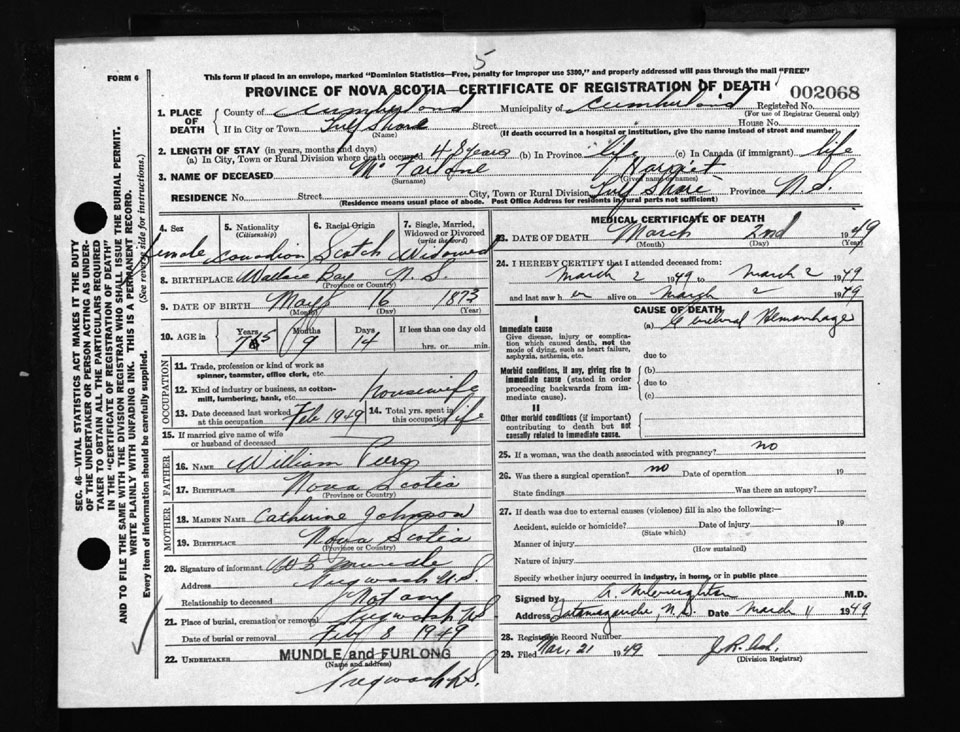 5
FORM 6
This form if placed in an envelope, marked "Dominion Statistics—Free, penalty for improper use $300," and properly addressed will pass through the mail "FREE"
PROVINCE OF NOVA SCOTIA—CERTIFICATE OF REGISTRATION OF DEATH
002068
1. PLACE OF DEATH
County of Cumberland Municipality of Cumberland Registered No.
(For use of Registrar General only)
If in City or Town Gulf Shore Street House No.
(Name) (If death occurred in a hospital or institution, give the name instead of street and number)
2. LENGTH OF STAY (in years, months and days)
(a) In City, Town or Rural Division where death occurred 48 years (b) In Province life (c) In Canada (if immigrant) life
3. NAME OF DECEASED Mc Harriet
(Surname) (Given name or names)
RESIDENCE No. Street City, Town or Rural Division Gulf Shore Province N.S.
(Residence means usual place of abode. Post Office Address for residents in rural parts not sufficient)
4. Sex
5. Nationality (Citizenship)
6. Racial Origin
7. Single, Married, Widowed or Divorced (write the word)
Female Canadian Scotch Widowed
8. BIRTHPLACE Wallace Bay N.S.
(Province or Country)
9. DATE OF BIRTH May 16 1873
(Month) (Day) (Year)
10. AGE in Years Months Days If less than one day old
75 9 14 hrs. or min.
OCCUPATION
11. Trade, profession or kind of work as spinner, teamster, office clerk, etc.
12. Kind of industry or business, as cotton-mill, lumbering, bank, etc. housewife
13. Date deceased last worked at this occupation Feb 1949
14. Total yrs. spent in this occupation life
15. If married give name of wife or husband of deceased
FATHER
16. NAME William
17. BIRTHPLACE Nova Scotia
(Province or Country)
MOTHER
18. MAIDEN NAME Catherine Johnson
19. BIRTHPLACE Nova Scotia
(Province or Country)
20. Signature of informant Mundle
Address Pugwash N.S.
Relationship to deceased Not any
21. Place of burial, cremation or removal Pugwash NS
Date of burial or removal 8 1949
22. UNDERTAKER MUNDLE and FURLONG
(Name and address)
Pugwash N.S.
MEDICAL CERTIFICATE OF DEATH
23. DATE OF DEATH March 2nd 1949
(Month) (Day) (Year)
24. I HEREBY CERTIFY that I attended deceased from:
March 2 1949 to March 2 1949
and last saw her alive on March 2 1949
CAUSE OF DEATH
I
Immediate cause
Give disease, injury or complication which caused death, not the mode of dying, such as heart failure, asphyxia, asthenia, etc.
(a) Cerebral Hemorrhage
due to
Morbid conditions, if any, giving rise to immediate cause (stated in order proceeding backwards from immediate cause).
(b)
due to
(c)
II
Other morbid conditions (if important) contributing to death but not causally related to immediate cause.
25. If a woman, was the death associated with pregnancy? no
26. Was there a surgical operation? no Date of operation 19
State findings Was there an autopsy?
27. If death was due to external causes (violence) fill in also the following:—
Accident, suicide or homicide? Date of injury 19
(State which)
Manner of injury
(How sustained)
Nature of injury
Specify whether injury occurred in industry, in home, or in public place
Signed by M.D.
Address Tatamagouche, N.S. Date March 11 1949
28. Registrar's Record Number
29. Filed Mar. 21 1949
(Division Registrar)
SEC. 46—VITAL STATISTICS ACT MAKES IT THE DUTY
OF THE UNDERTAKER OR PERSON ACTING AS UNDER-
TAKER TO OBTAIN ALL THE PARTICULARS REQUIRED
IN THE "CERTIFICATE OF REGISTRATION OF DEATH"
AND TO FILE THE SAME WITH THE DIVISION REGISTRAR WHO SHALL ISSUE THE BURIAL PERMIT.
WRITE PLAINLY WITH UNFADING INK. THIS IS A PERMANENT RECORD.
Every item of information should be carefully supplied. (See reverse side for instructions.)